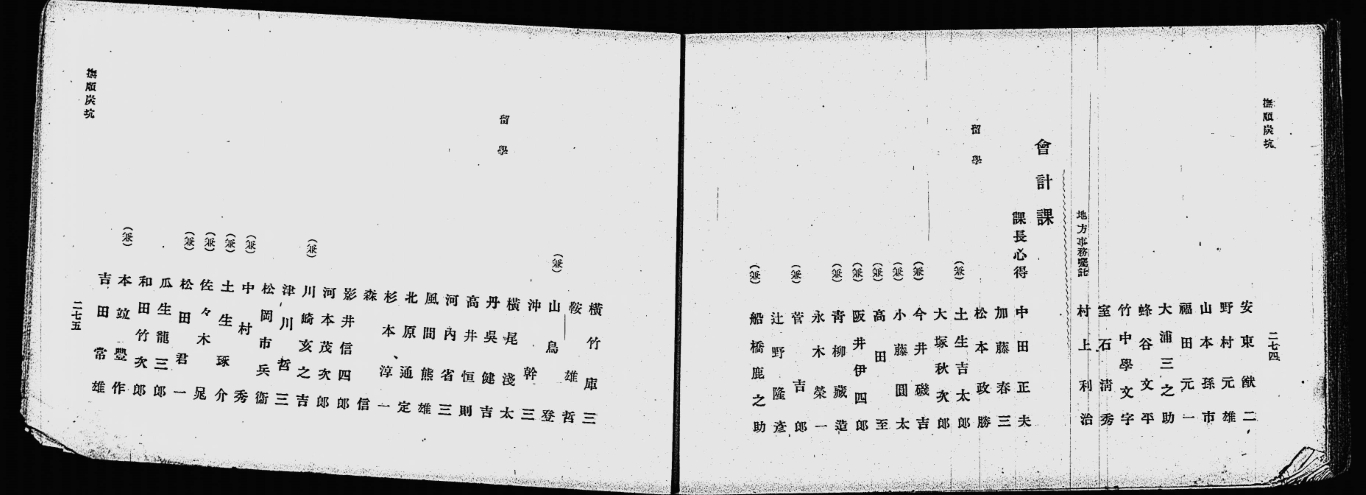 撫順炭坑
二七四
安東猷二
野村元雄
山本孫市
福田元一
大浦三之助
蜂谷文平
竹中學文字
室石清秀
地方事務囑託 村上利治
會計課
課長心得 中田正夫
留學 加藤春三
松本政勝
(兼) 土生吉太郎
大塚秋次郎
(兼) 今井磯吉
(兼) 小藤圓太
(兼) 高田至
(兼) 阪井伊四郎
(兼) 青柳藏造
永木榮一
(兼) 菅吉郎
辻野隆彥
(兼) 船橋鹿之助
橫竹庫三
鞍雄哲
(兼) 山鳥登
沖幹三
留學 橫尾淺太
丹吳健吉
高井恒則
河內省三
風間熊雄
北原通定
杉本淳一
森信
影井信四郎
河本茂次郎
(兼) 川崎亥之吉
津川哲三
松岡市兵衞
(兼) 中村秀
(兼) 土生琢介
(兼) 佐々木晃
(兼) 松田君一
瓜生龍三郎
和田竹次郎
(兼) 本竝豐作
吉田常雄
撫順炭坑
二七五